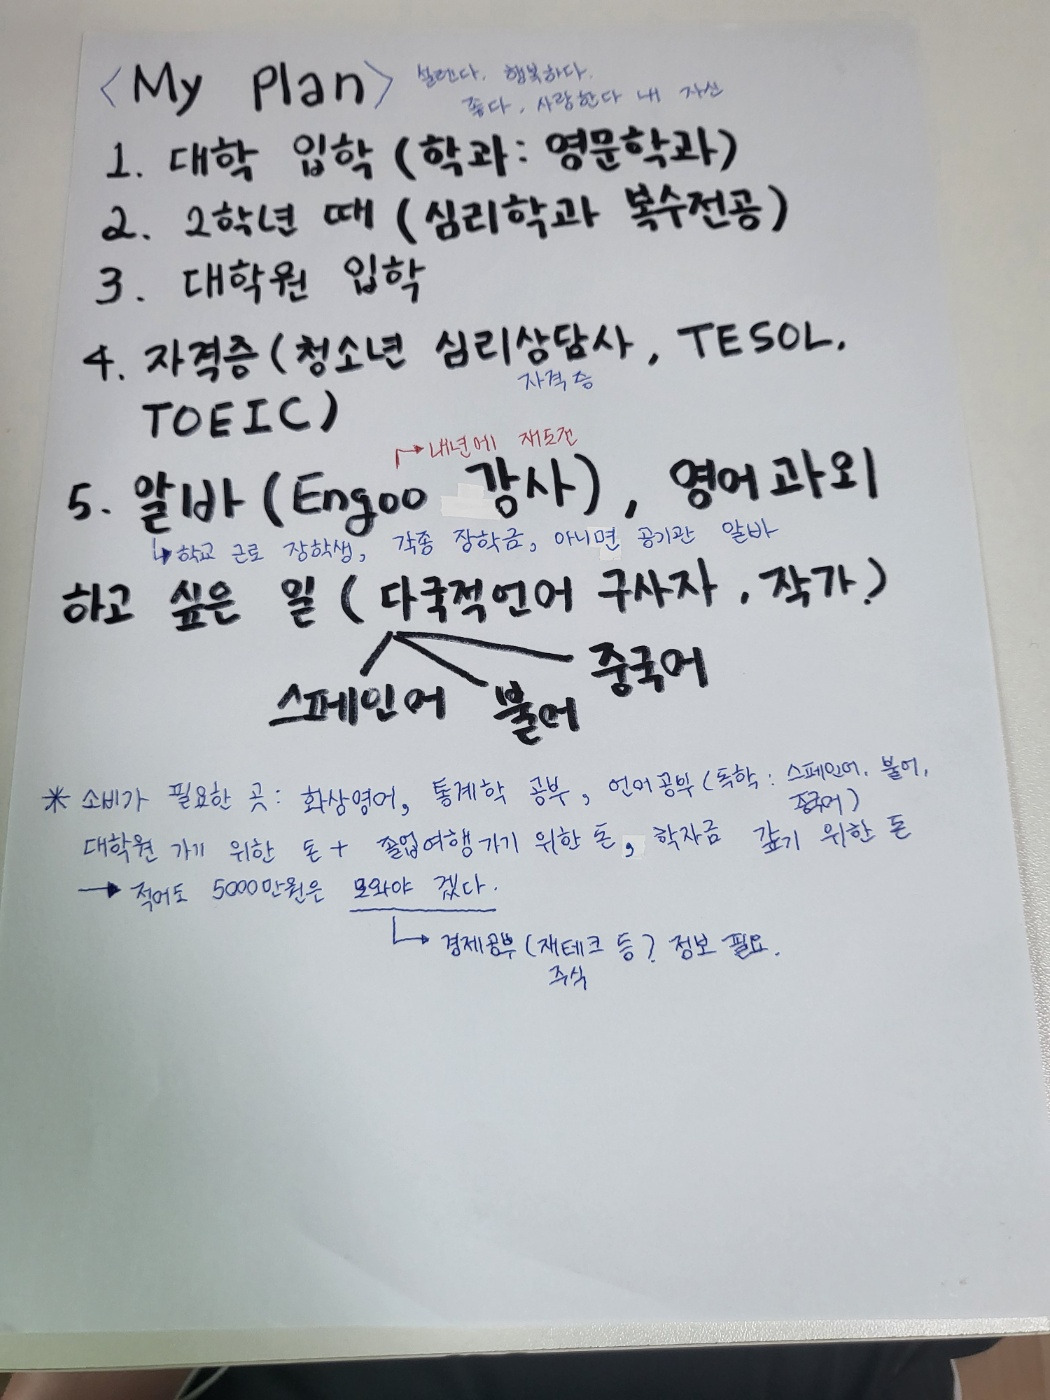 <My Plan> 설렌다. 행복하다.
좋다, 사랑한다 내 자신
1. 대학 입학 (학과: 영문학과)
2. 2학년 때 (심리학과 복수전공)
3. 대학원 입학
4. 자격증 (청소년 심리상담사, TESOL,
자격증
TOEIC)
→ 내년에 재도전
5. 알바 (Engoo 강사), 영어과외
↳ 학교 근로 장학생, 각종 장학금, 아니면 공기관 알바
하고 싶은 일 (다국적언어 구사자, 작가)
스페인어 불어 중국어
* 소비가 필요한 곳: 화상영어, 통계학 공부, 언어공부 (독학: 스페인어, 불어,
중국어)
대학원 가기 위한 돈 + 졸업여행 가기 위한 돈, 학자금 갚기 위한 돈
→ 적어도 5000만원은 모와야 겠다.
↳ 경제공부 (재테크 등? 정보 필요.
주식